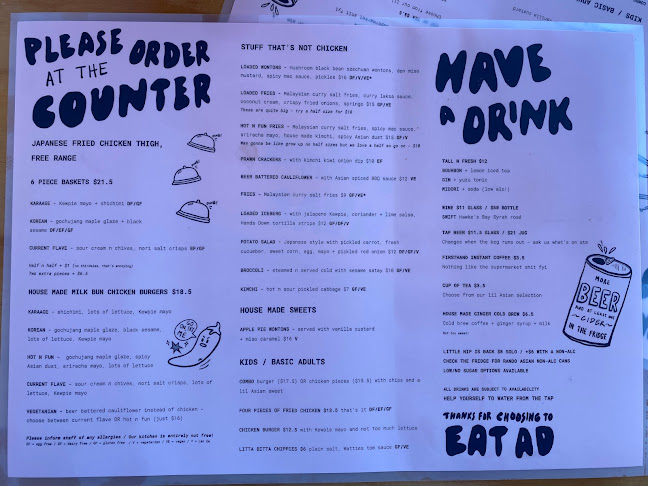 PLEASE ORDER
AT THE
COUNTER
JAPANESE FRIED CHICKEN THIGH,
FREE RANGE
6 PIECE BASKETS $21.5
KARAAGE - Kewpie mayo + shichimi DF/GF
KOREAN - gochujang maple glaze + black
sesame DF/EF/GF
CURRENT FLAVE - sour cream n chives, nori salt crisps EF/GF
Half n half + $1
Two extra pieces + $6.5
HOUSE MADE MILK BUN CHICKEN BURGERS $18.5
KARAAGE - shichimi, lots of lettuce, Kewpie mayo
KOREAN - gochujang maple glaze, black sesame,
lots of lettuce, Kewpie mayo
HOT N FUN - gochujang maple glaze, spicy
Asian dust, sriracha mayo, lots of lettuce
CURRENT FLAVE - sour cream n chives, nori salt crisps, lots of
lettuce, Kewpie mayo
VEGETARIAN - beer battered cauliflower instead of chicken -
choose between current flave OR hot n fun (just $16)
Please inform staff of any allergies / Our kitchen is entirely nut free!
STUFF THAT'S NOT CHICKEN
LOADED WONTONS - mushroom black bean szechuan wontons, dan miso
mustard, spicy mac sauce, pickles $16 DF/V/VE*
LOADED FRIES - Malaysian curry salt fries, curry laksa sauce,
coconut cream, crispy fried onions, springs $18 GF/VE
These are quite big - try a half size for $10
HOT N FUN FRIES - Malaysian curry salt fries, spicy mac sauce,
sriracha mayo, house made kimchi, spicy Asian dust $18 GF/V
PRAWN CRACKERS - with kimchi kiwi onion dip $10 EF
BEER BATTERED CAULIFLOWER - with Asian spiced BBQ sauce $12 VE
FRIES - Malaysian curry salt fries $9 GF/VE*
LOADED ICEBERG - with jalapeno Kewpie, coriander + lime salsa,
Hands Down tortilla strips $12 GF/DF/V
POTATO SALAD - Japanese style with pickled carrot, fresh
cucumber, sweet corn, egg, mayo + pickled red onion $12 DF/GF/V
BROCCOLI - steamed n served cold with sesame satay $10 GF/VE
KIMCHI - hot n sour pickled cabbage $7 GF/VE
HOUSE MADE SWEETS
APPLE PIE WONTONS - served with vanilla custard
+ miso caramel $16 V
KIDS / BASIC ADULTS
COMBO burger ($17.5) OR chicken pieces ($19.5) with chips and a
lil Asian sweet
FOUR PIECES OF FRIED CHICKEN $13.5 that's it DF/EF/GF
CHICKEN BURGER $12.5 with Kewpie mayo and not too much lettuce
LITTA BITTA CHIPPIES $6 plain salt, Watties tom sauce GF/VE
HAVE
A DRINK
TALL N FRESH $12
BOURBON + lemon iced tea
GIN + yuzu tonic
MIDORI + soda (low mix!)
WINE $11 GLASS / $50 BOTTLE
SWIFT Hawke's Bay Syrah rosé
TAP BEER $11.5 GLASS / $21 JUG
Changes when the bog runs out - ask us what's on atm
FIRSTHAND INSTANT COFFEE $3.5
Nothing like the supermarket shit fyi
CUP OF TEA $3.5
Choose from our lil Asian selection
HOUSE MADE GINGER COLD BREW $6.5
Cold brew coffee + ginger syrup + milk
Not too sweet!
LITTLE NIP IS BACK $8 SOLO / +$5 WITH A NON-ALC
CHECK THE FRIDGE FOR RANDO ASIAN NON-ALC CANS
LOW/NO SUGAR OPTIONS AVAILABLE
ALL DRINKS ARE SUBJECT TO AVAILABILITY
HELP YOURSELF TO WATER FROM THE TAP
THANKS FOR CHOOSING TO
EAT AD
MORE
BEER
AND AT LEAST ONE
CIDER
IN THE FRIDGE
KIDS / BASIC